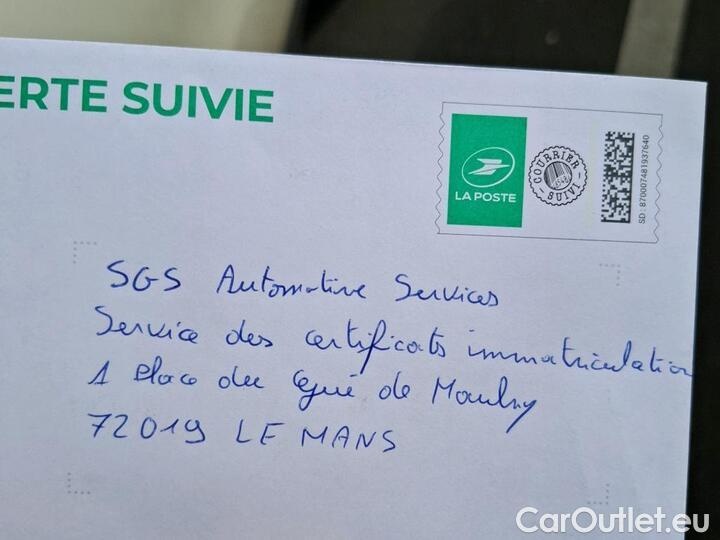 ERTE SUIVIE
LA POSTE
COURRIER SUIVI
SD: 87000748193764O
SGS Automotive Services
Service des certificats immatriculation
1 Place du Gué de Maulny
72019 LE MANS
CarOutlet.eu